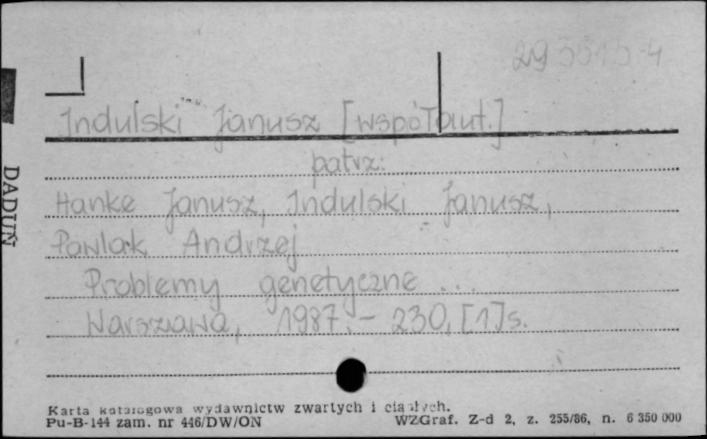 Indulski Janusz [współaut.]
patrz:
Hanke Janusz, Indulski Janusz,
Pawlak Andrzej
Problemy genetyczne ...
Warszawa, 1987. – 230, [1] s.
DADUŃ
Karta katalogowa wydawnictw zwartych i ciągłych.
Pu-B-144 zam. nr 446/DW/ON WZGraf. Z-d 2, z. 255/86, n. 6 350 000